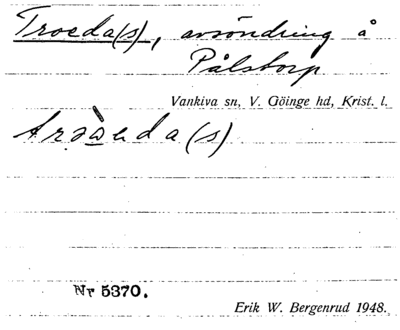 Troeda(s), avsöndring å
Pålstorp
Vankiva sn, V. Göinge hd, Krist. l.
Nr 5370.
Erik W. Bergenrud 1948.